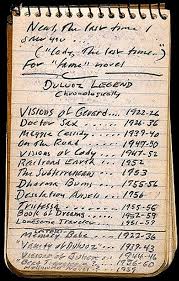 Neal, the last time I
saw you...
("Cody, the last time.")
For "fame" novel
DULUOZ LEGEND
Chronologically
Visions of Gerard... 1922-26
Doctor Sax ... 1926-36
Maggie Cassidy ... 1939-40
On the Road ... 1947-50
Visions of Cody ... 1947-52
Railroad Earth ... 1952
The Subterraneans ... 1953
Dharma Bums ... 1955-56
Desolation Angels ... 1956
Tristessa ... 1955-56
Book of Dreams ... 1952-59
Lonesome Traveler ... 1951-59
Memory Babe 1922-36
Vanity of Duluoz 1939-43